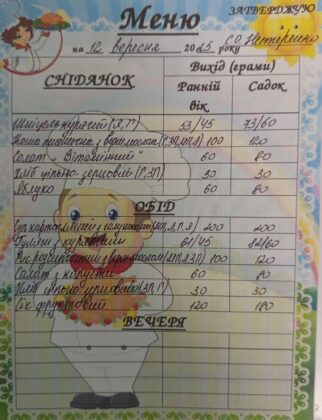 ЗАТВЕРДЖУЮ
Меню
на 12 вересня 2025 року
СНІДАНОК Вихід (грами)
Ранній вік Садок
Шніцель курячий (Я,Г) 53/45 73/60
Каша пшенична з 100 120
Салат Вітамінний 60 80
Хліб цільно зерновий (Г,ЗП) 30 30
Яблуко 60 80
ОБІД
Суп картопляний з 200 200
61/45 82/60
Рис розсипчастий з 100 120
Салат з капусти 60 80
Хліб цільно зерновий (ЗП,Г) 30 30
Сік фруктовий 120 180
ВЕЧЕРЯ